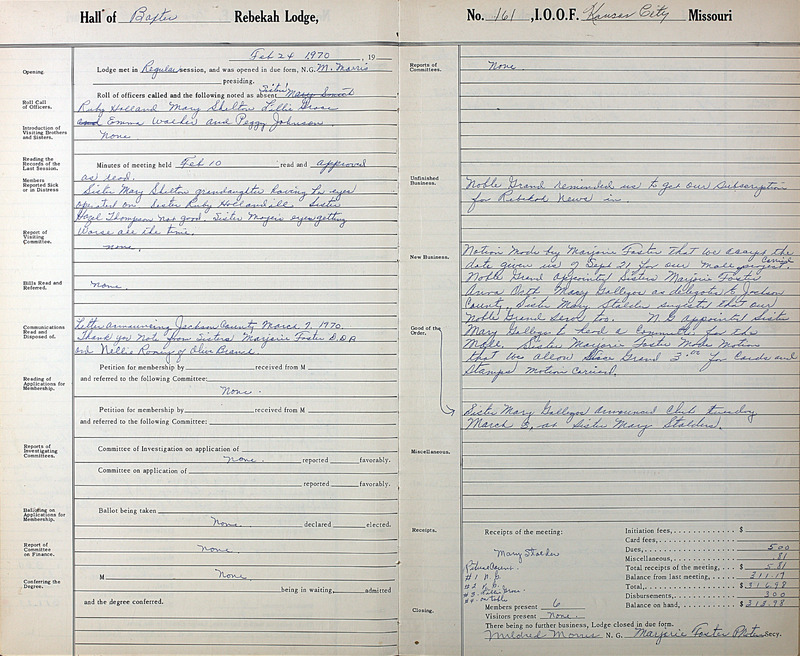 Hall of Baxter Rebekah Lodge,
Feb 24 1970, 19
Opening.
Lodge met in Regular session, and was opened in due form, N.G. M. Morris
presiding.
Roll Call of Officers.
Roll of officers called and the following noted as absent Sister Mary Smith
Ruby Holland Mary Shelton Lillie Grose
and Emma Walker and Peggy Johnson.
Introduction of Visiting Brothers and Sisters.
None
Reading the Records of the Last Session.
Minutes of meeting held Feb 10 read and approved
as read.
Members Reported Sick or in Distress
Sister Mary Shelton grandaughter having eyes
operated on. Sister Ruby Holland ill. Sister
Hazel Thompson not good. Sister eyes getting
Worse all the time.
Report of Visiting Committee.
none.
Bills Read and Referred.
none.
Communications Read and Disposed of.
Letter announcing Jackson County March 7, 1970.
Thank you Not from Sisters Marjorie Foster D.D.P.
and Nellie of Olive Branch.
Petition for membership by received from M
and referred to the following Committee:
Reading of Applications for Membership.
None.
Petition for membership by received from M
and referred to the following Committee:
Reports of Investigating Committees.
Committee of Investigation on application of
None. reported favorably.
Committee on application of
reported favorably.
Balloting on Applications for Membership.
Ballot being taken
None. declared elected.
Report of Committee on Finance.
None.
Conferring the Degree.
M None.
being in waiting, admitted
and the degree conferred.
No. 161, I.O.O.F. Kansas City Missouri
Reports of Committees.
None.
Unfinished Business.
Noble Grand reminded us to get our Subscription
for Rebekah News in.
New Business.
Motion Made by Marjorie Foster that we accept the
date given us of Sept 21 for our Male project. Carried
Noble Grand appointed Sisters Marjorie Foster
Anna Ogth Mary Gallegos as delegates to Jackson
County. Sister Mary Stalder that our
Noble Grand Serve too. N.G. appointed Sister
Good of the Order.
Mary Gallegos to head a Committee for the
Male. Sister Marjorie Foster Made Motion
that we allow Grand 3.00 for Cards and
Stamps Motion Carried.
Sister Mary Gallegos announced Club tuesday
March 3, at Sister Mary Stalders.
Miscellaneous.
Receipts.
Receipts of the meeting:
Mary Stalder
#1 N.G.
#2 V.G.
#3 Lillie Grose
#4
Initiation fees, $
Card fees,
Dues, 5 00
Miscellaneous, .81
Total receipts of the meeting, $ 5.81
Balance from last meeting, 311.17
Total, $ 316.98
Disbursements, 3 00
Balance on hand, $ 313.98
Members present 6
Visitors present None.
Closing.
There being no further business, Lodge closed in due form.
Mildred Morris N. G. Marjorie Foster Secy.